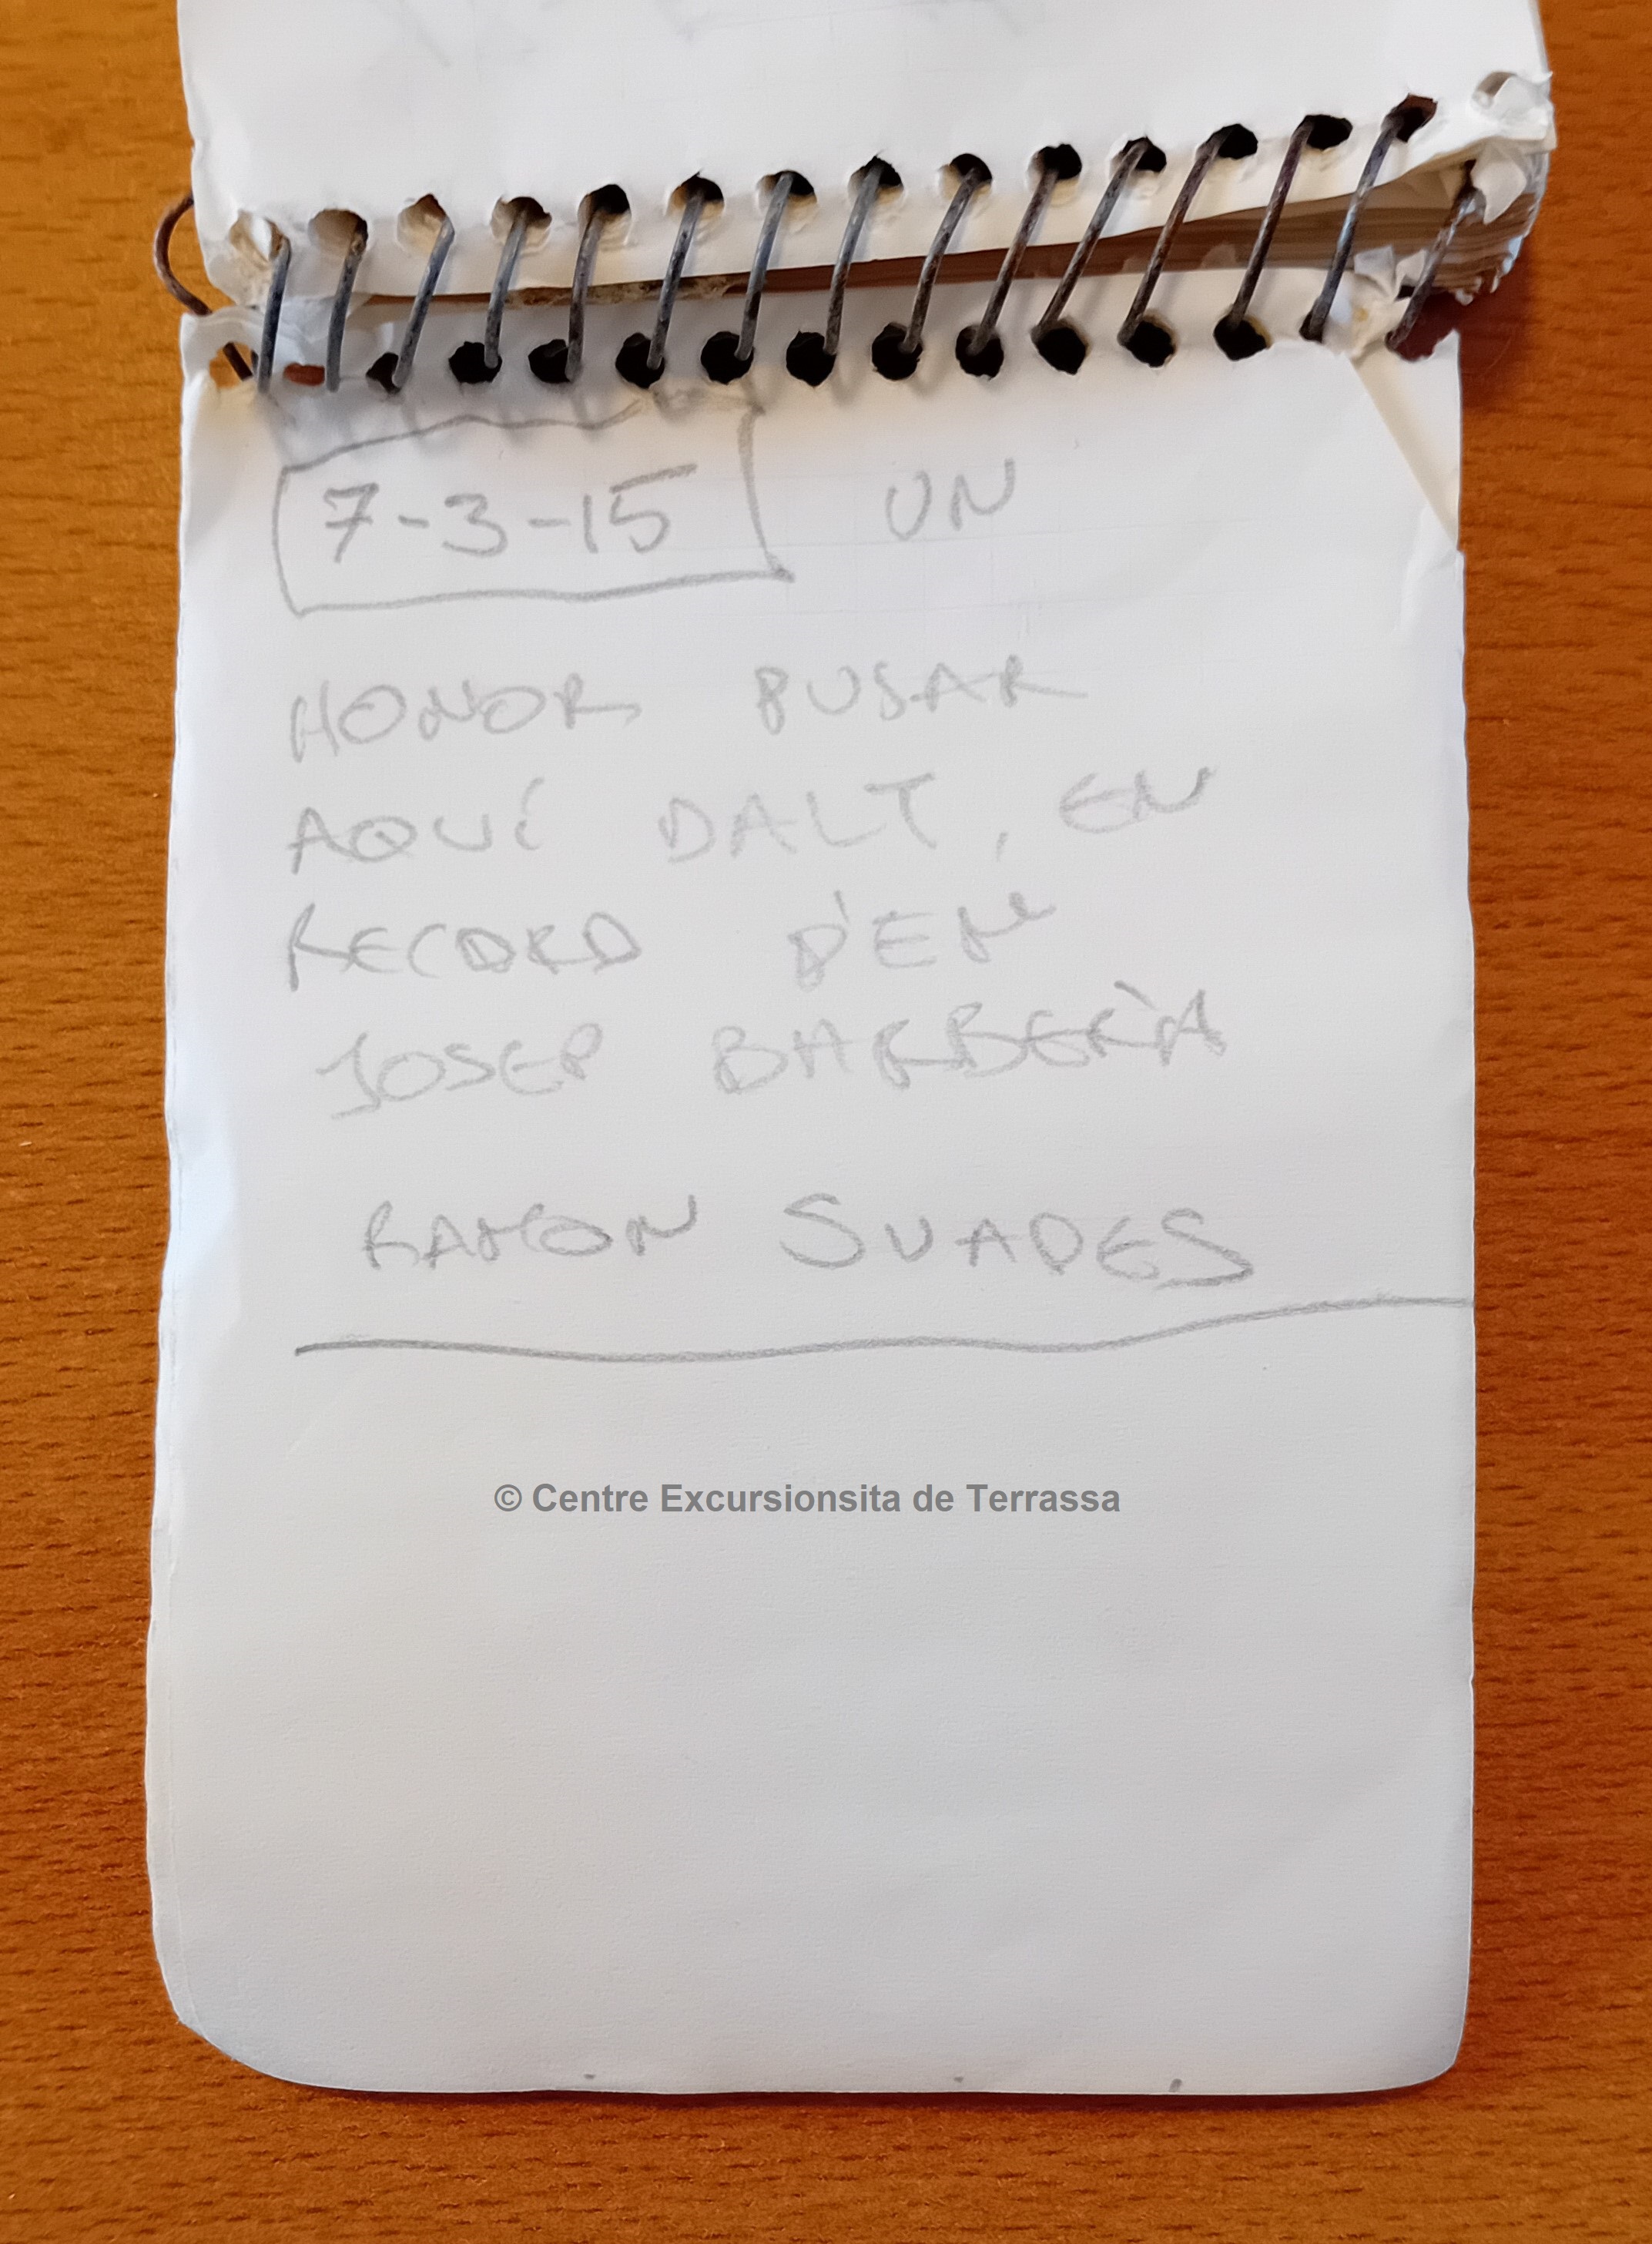 7-3-15 UN
HONOR PUJAR
AQUÍ DALT, EN
RECORD D'EN
JOSEP BARBERÀ
RAMON SUADES
© Centre Excursionsita de Terrassa